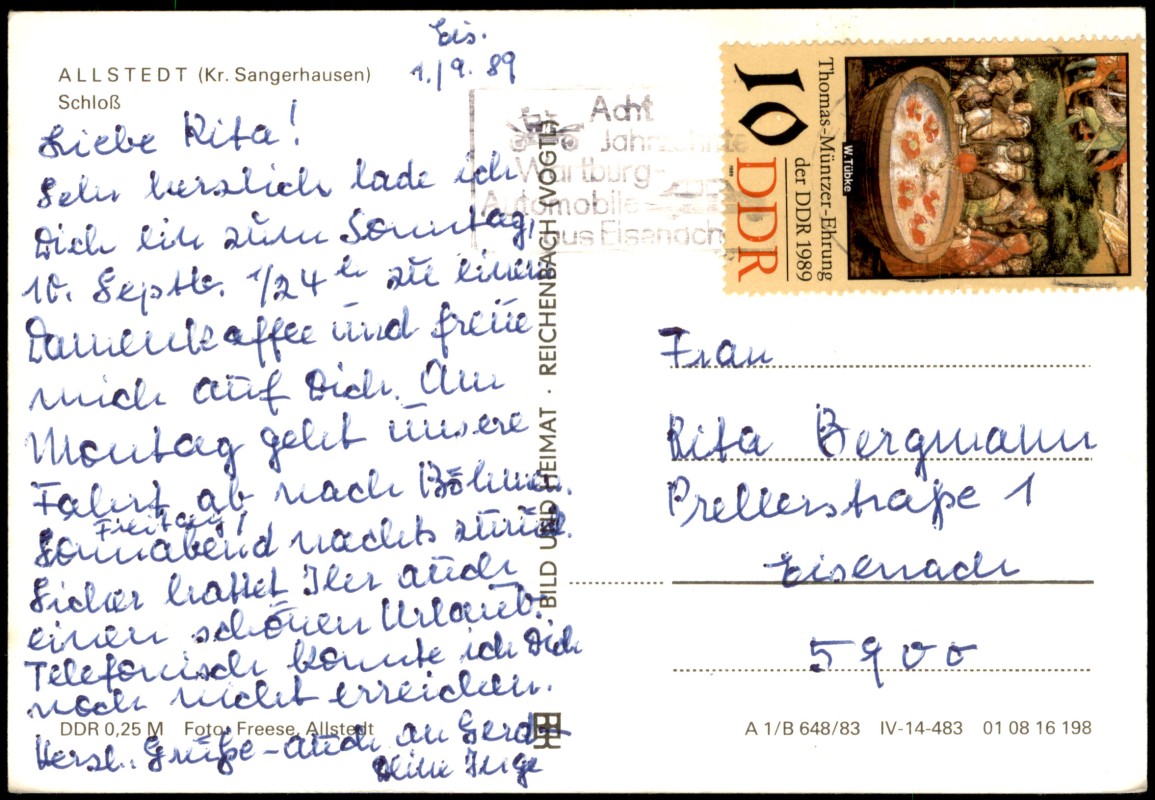 Eis.
1./9. 89
ALLSTEDT (Kr. Sangerhausen)
Schloß
Liebe Rita!
Sehr herzlich lade ich
Dich ein zum Sonntag,
10. Septb. 1/24 h zu einem
Damenkaffee und freue
mich auf Dich. Am
Montag geht unsere
Fahrt ab nach Böhmen.
Freitag!
Sonnabend nachts zurück.
Sicher hattet Ihr auch
einen schönen Urlaub.
Telefonisch konnte ich Dich
noch nicht erreichen.
Herzl. Grüße - auch an Gerd
Deine Inge
DDR 0,25 M Foto: Freese, Allstedt
BILD UND HEIMAT · REICHENBACH (VOGTL)
Acht
Jahrzehnte
Wartburg-
Automobile
aus Eisenach
10 DDR
1989
Thomas-Müntzer-Ehrung
der DDR 1989
W. Tübke
Frau
Rita Bergmann
Prellerstraße 1
Eisenach
5900
A 1/B 648/83 IV-14-483 01 08 16 198